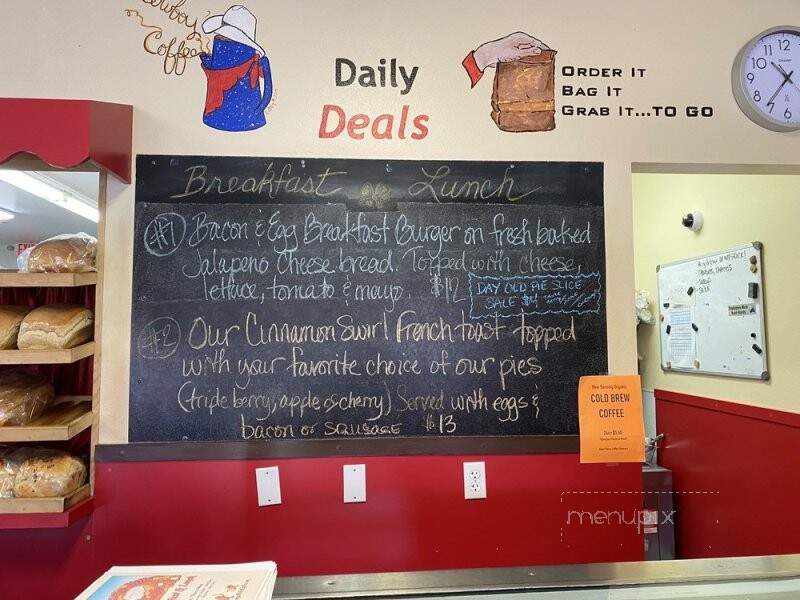 Cowboy
Coffee
Daily
Deals
Order It
Bag It
Grab It...To Go
12
11
10
9
8
7
6
Breakfast Lunch
#1 Bacon & Egg Breakfast Burger on fresh baked
Jalapeno Cheese bread. Topped with cheese,
lettuce, tomato & mayo. $12
DAY OLD PIE SLICE
SALE $4
#2 Our Cinnamon Swirl French toast topped
with your favorite choice of our pies
(triple berry, apple or cherry) Served with eggs &
bacon or sausage $13
Now Serving Organic
COLD BREW
COFFEE
menupix